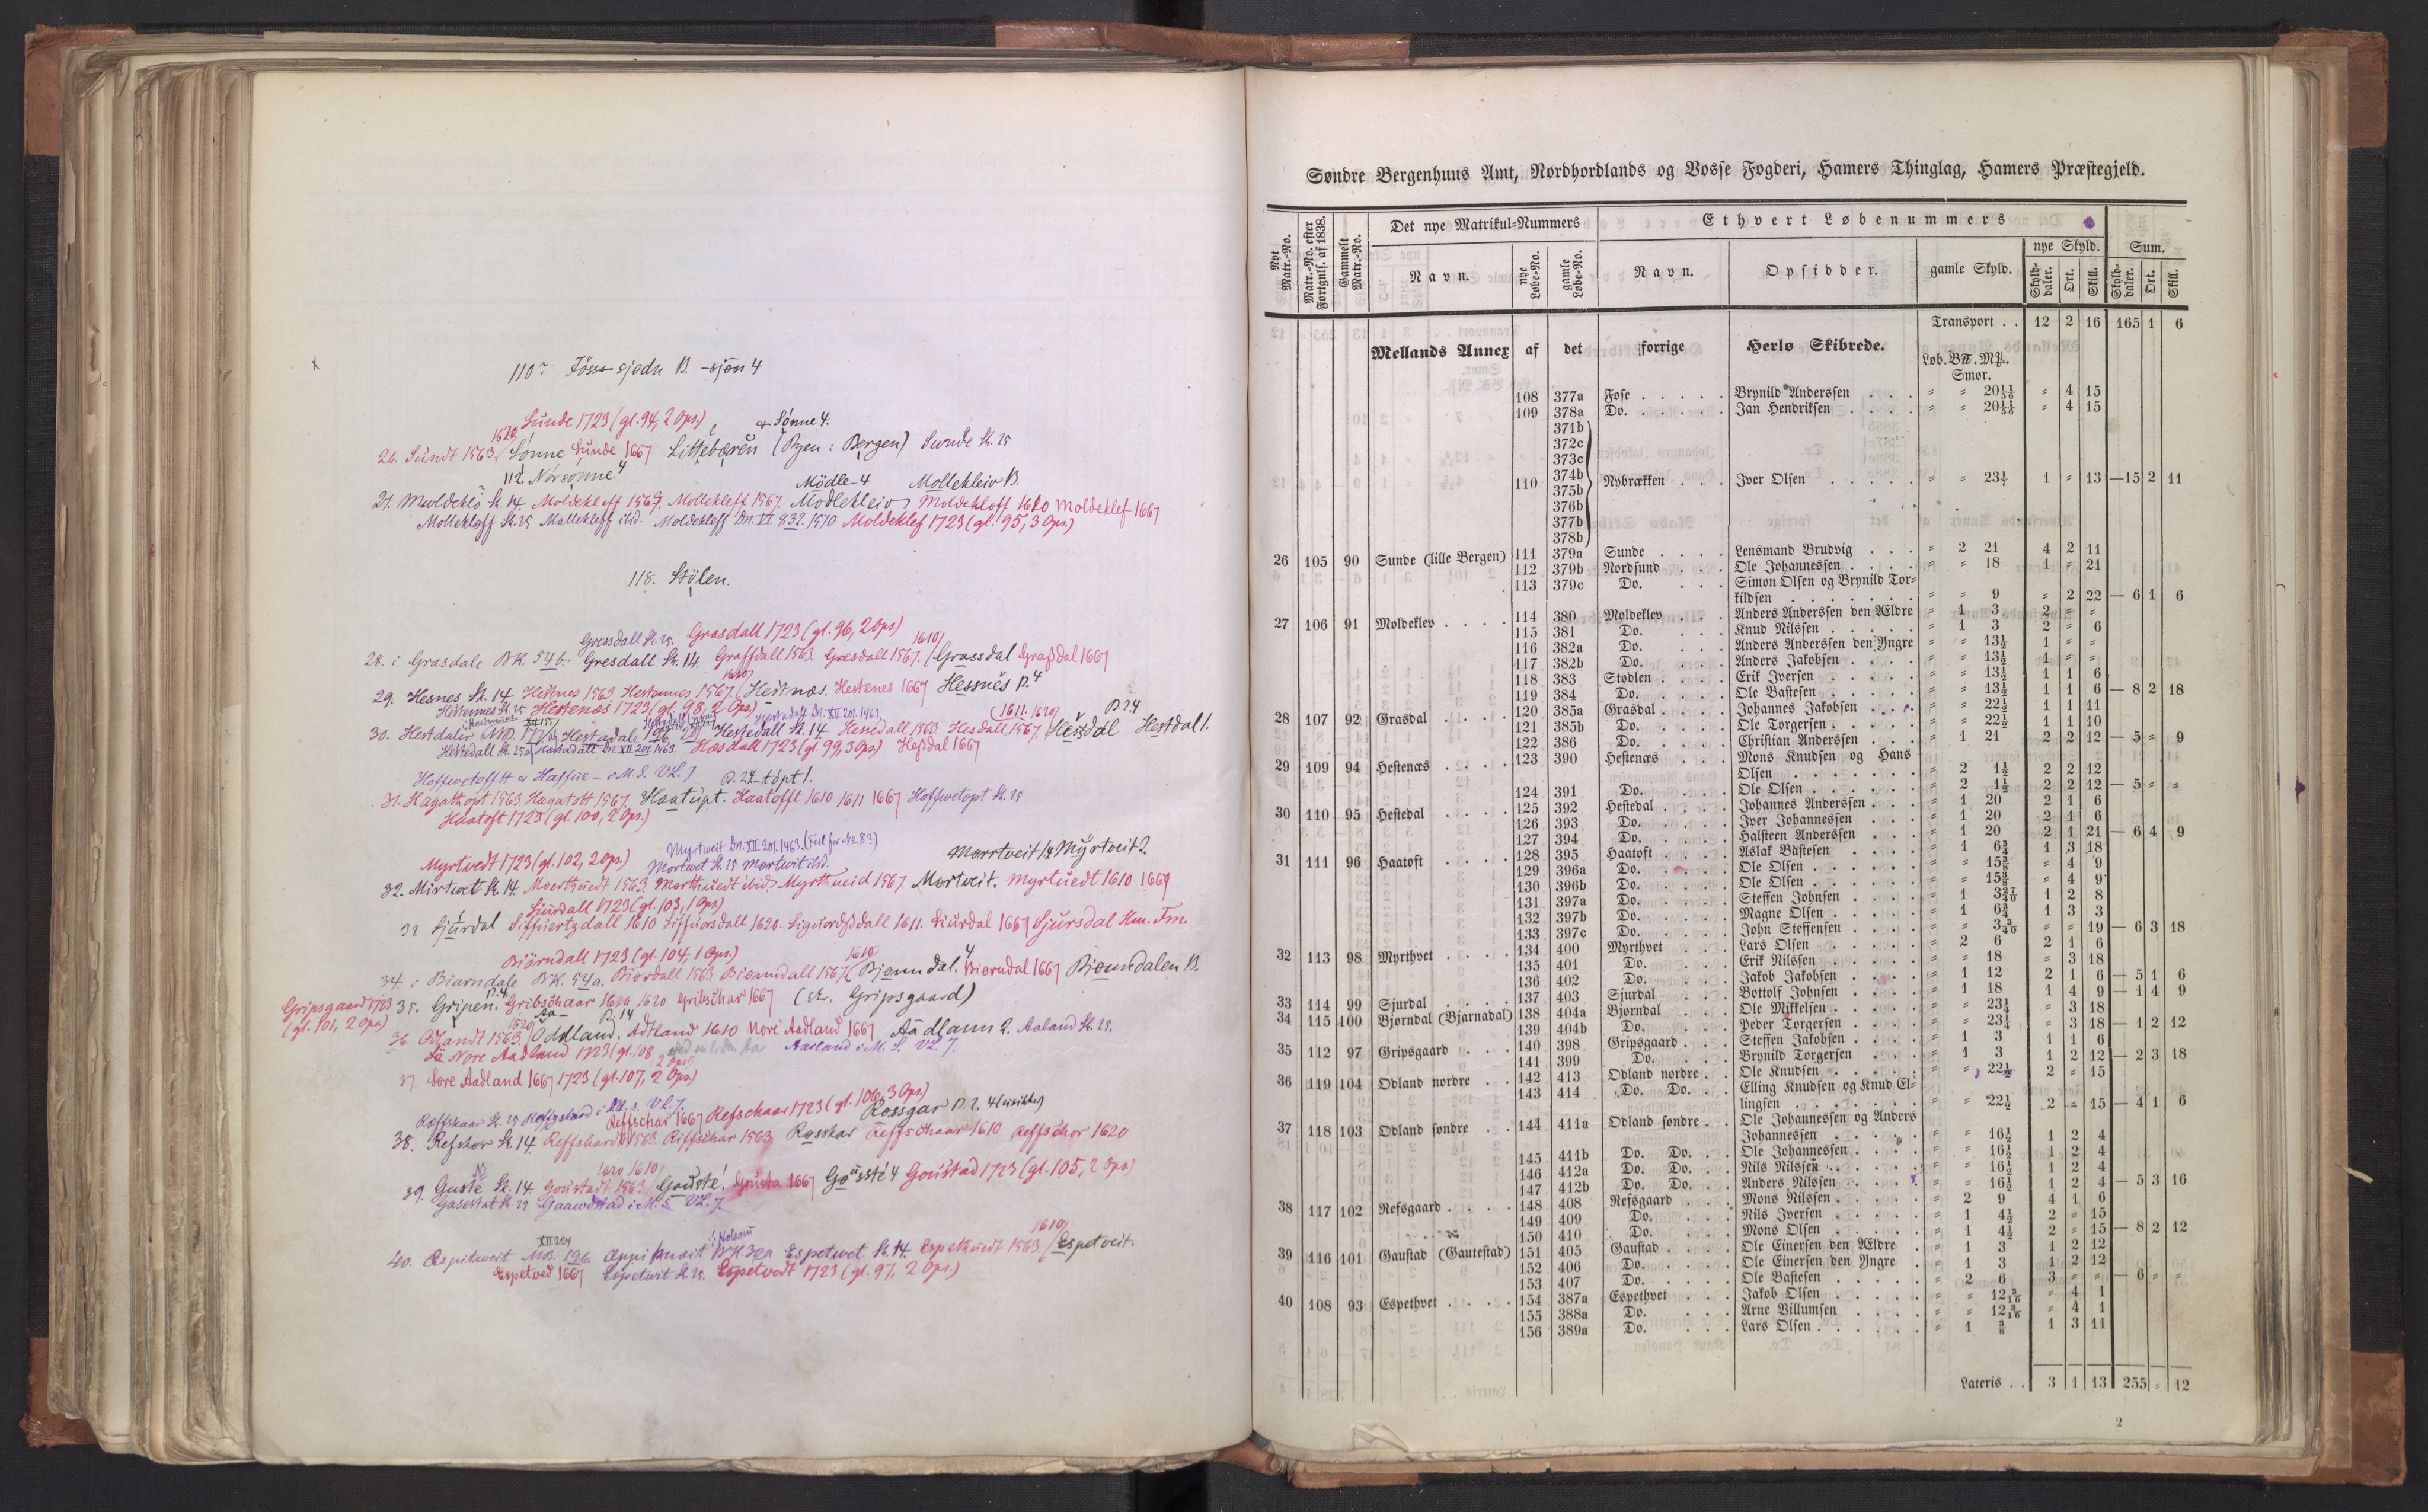 110 Föss- sjødn B. -sjøn 4
Sunde 1723 (gl. 94, 2 Ops.)
Sønne 4.
26. Sundt 1563. 1620 Sønne Sunde 1667 Littebæren (Byen: Bergen) Sunde Sk. 25
112. Nörsönne 4
Mödle- 4 Mollekleiv B.
Muldekló Sk. 14. Moldekleff 1563. Mollekleff 1567. Modlekleiv Moldekloff 1610 Moldeklef 1667
Mollekloff Sk. 25 Mallekleff ibid. Moldekleff Dn. VI 832. 1570 Moldeklef 1723 (gl. 95, 3 Ops.)
118. Stölen.
Gressdall Sk. 25. Grasdall 1723 (gl. 96, 2 Ops.)
28. i Grasdale BK. 54b. Gresdall Sk. 14. Graffdall 1563. Gresdall 1567. 1610 Grassdal Grassdal 1667
29. Hesnes Sk. 14 Hestnes 1563 Hestennes 1567. 1610 Hestnæs. Hestenes 1667 Hesnés B. 4
Hestennes Sk. 25 Hestenæs 1723 (gl. 98, 2 Ops.)
30. Hestdalir Hestadall Dn. XII 201. 1463 Hestedall Sk. 14. Hessedall 1563. Hesdall 1567. 1611. 1620 Hesdal Hestdal 1.
Hestedall Sk. 25 Hestadall Dn. XII 201. 1463. Hæsdall 1723 (gl. 99, 3 Ops) Hesdal 1667
Hoffwetofft a Haffue- i M.S. VL. 7 B. 24 -töpt 1.
31. Hagathopt 1563. Hagatoft 1567. Haatupt. Haatofft 1610 1611 1667 Hoffwetopt Sk. 25
Haatoft 1723 (gl. 100, 2 Ops.)
Myrtweit Dn. XII 201. 1463. (Feil for No 8?)
Myrtvedt 1723 (gl. 102, 2 Ops.) Mortwet Sk. 25 Mortwit ibid. Morrtveit 14 Myrtveit 2.
32. Mirtwet Sk. 14. Moerthuedt 1563. Morthuedt ibid. Myrthueid 1567 Mortveit. Myrtuedt 1610 1667
Siurdall 1723 (gl. 103, 1 Ops)
33 Sjurdal Siffuertzdall 1610 Siffuorsdall 1620. Siguordssdall 1611. Siurdal 1667 Sjursdal Hm. Fm.
Biörndall 1723 (gl. 104, 1 Ops.)
34. i Biarndale BK. 54a. Biordall 1563 Bioenndall 1567. 1610 Bjønndal. 4 Biørndal 1667 Bjønndalen B.
Gripsgaard 1723 35. Gripen. B. 4 Gribschaar 1610 1620 Gribschar 1667 (skr. Gripsgaard)
(gl. 101, 2 Ops)
36. Odlandt 1563. 1620 Oddland. Adtland 1610 Nore Aadland 1667 Aadlann 2. Aaland Sk. 25.
Nore Aadland 1723 (gl. 108, 2 Ops.) Aaeland i M. S. VL. 7.
37. Søre Aadland 1667 1723 (gl. 107, 2 Ops.)
Ræffskaar Sk. 25 Reffschar 1667 Refschaar 1723 (gl. 106, 3 Ops) Rossgar B. 2. 4
38. Refskor Sk. 14. Reffshard 1563 Riffschar 1563 Rosskar Reffschaar 1610 Reffschor 1620
39. Guste Sk. 14. Goustadt 1563. 1620 1610 Gousta! Gousta 1667 Goussté 4 Goustad 1723 (gl. 105, 2 Ops.)
Gasestat Sk. 25 Gaawestad i M. S. VL. 7.
40. Espitweit BK. 32a Espetwet Sk. 14. Espethuedt 1563. 1610 Espetveit.
Espetved 1667 Espetwit Sk. 25. Espetvedt 1723 (gl. 97, 2 Ops.)
Søndre Bergenhuus Amt, Nordhordlands og Vosse Fogderi, Hamers Thinglag, Hamers Præstegjeld.
Nyt Matr.-No. Matr.-No. efter Fortgnls. af 1838. Gammelt Matr.-No. Det nye Matrikul-Nummers Ethvert Løbenummers
Navn. nye Løbe-No. gamle Løbe-No. Navn. Opsidder. gamle Skyld. nye Skyld. Sum.
Skylddaler. Ort. Skill. Skylddaler. Ort. Skill.
Transport . . 12 2 16 165 1 6
Mellands Annex af det forrige Herlø Skibrede.
Løb. B℔. M℔.
Smør.
108 377a Fose . . . . . Brynild Anderssen . . . " " 20 11/56 " 4 15
109 378a Do. . . . . . Jan Hendriksen . . . . " " 20 11/56 " 4 15
371b
372c
373c
374b
110 375b Nybrækken . . . Iver Olsen . . . . . " " 23 1/7 1 " 13 — 15 2 11
376b
377b
378b
26 105 90 Sunde (lille Bergen) 111 379a Sunde . . . . Lensmand Brudvig . . . " 2 21 4 2 11
112 379b Nordsund . . . Ole Johannessen . . . . " " 18 1 " 21
113 379c Do. . . . Simon Olsen og Brynild Tor-
kildsen . . . . . . . " " 9 " 2 22 — 6 1 6
27 106 91 Moldeklev . . . . 114 380 Moldeklev . . . Anders Anderssen den Ældre " 1 3 2 " "
115 381 Do. . . . Knud Nilssen . . . . . " 1 3 2 " 6
116 382a Do. . . . Anders Anderssen den Yngre " " 13½ 1 " "
117 382b Do. . . . Anders Jakobsen . . . . " " 13½ 1 " "
118 383 Stødlen . . . . Erik Iversen . . . . . " " 13½ 1 1 6
119 384 Do. . . . . Ole Bastesen . . . . . " " 13½ 1 1 6 — 8 2 18
28 107 92 Grasdal . . . . 120 385a Grasdal . . . . Johannes Jakobsen . . . . " " 22½ 1 1 11
121 385b Do. . . . . Ole Torgersen . . . . . " " 22½ 1 1 10
122 386 Do. . . . . Christian Anderssen . . . " 1 21 2 2 12 — 5 " 9
29 109 94 Hestenæs . . . . 123 390 Hestenæs . . . Mons Knudsen og Hans
Olsen . . . . . . . " 2 1½ 2 2 12
124 391 Do. . . . Ole Olsen . . . . . . " 2 1½ 2 2 12 — 5 " "
30 110 95 Hestedal . . . . 125 392 Hestedal . . . . Johannes Anderssen . . . " 1 20 2 1 6
126 393 Do. . . . . Iver Johannessen . . . " 1 20 2 1 6
127 394 Do. . . . . Halsteen Anderssen . . . " 1 20 2 1 21 — 6 4 9
31 111 96 Haatoft . . . . 128 395 Haatoft . . . . Aslak Bastesen . . . . " 1 6¾ 1 3 18
129 396a Do. . . . . Ole Olsen . . . . . . " " 15⅜ " 4 9
130 396b Do. . . . . Ole Olsen . . . . . . " " 15⅜ " 4 9
131 397a Do. . . . . Steffen Johnsen . . . . " 1 3 27/40 1 2 8
132 397b Do. . . . . Magne Olsen . . . . . " 1 6¾ 1 3 3
133 397c Do. . . . . John Steffensen . . . . " " 3 3/40 " " 19 — 6 3 18
32 113 98 Myrthvet . . . . 134 400 Myrthvet . . . Lars Olsen . . . . . " 2 6 2 1 6
135 401 Do. . . . Erik Nilssen . . . . . " " 18 " 3 18
136 402 Do. . . . Jakob Jakobsen . . . . " 1 12 2 1 6 — 5 1 6
33 114 99 Sjurdal . . . . 137 403 Sjurdal . . . Bottolf Johnsen . . . . " 1 18 1 4 9 — 1 4 9
34 115 100 Bjørndal (Bjarnadal) 138 404a Bjørndal . . . Ole Mikkelsen . . . . . " " 23¼ " 3 18
139 404b Do. . . . Peder Torgersen . . . . " " 23¼ " 3 18 — 1 2 12
35 112 97 Gripsgaard . . . 140 398 Gripsgaard . . . Steffen Jakobsen . . . . " 1 3 1 1 6
141 399 Do. . . . Brynild Torgersen . . . " 1 3 1 2 12 — 2 3 18
36 119 104 Odland nordre . . 142 413 Odland nordre . . Ole Knudsen . . . . . " " 22½ 2 " 15
143 414 Do. Do. . . Elling Knudsen og Knud El-
lingsen . . . . . . . " " 22½ 2 " 15 — 4 1 6
37 118 103 Odland søndre . . 144 411a Odland søndre . . Ole Johannessen og Anders
Johannessen . . . . . " " 16½ 1 2 4
145 411b Do. Do. . . Ole Johannessen . . . . " " 16½ 1 2 4
146 412a Do. Do. . . Nils Nilssen . . . . . " " 16½ 1 2 4
147 412b Do. Do. . . Anders Nilssen . . . . " " 16½ 1 2 4 — 5 3 16
38 117 102 Refsgaard . . . . 148 408 Refsgaard . . . Mons Nilssen . . . . . " 2 9 4 1 6
149 409 Do. . . . Nils Iversen . . . . . " 1 4½ 2 " 15
150 410 Do. . . . Mons Olsen . . . . . " 1 4½ 2 " 15 — 8 2 12
39 116 101 Gaustad (Gautestad) 151 405 Gaustad . . . . Ole Einersen den Ældre . " 1 3 1 2 12
152 406 Do. . . . . Ole Einersen den Yngre . " 1 3 1 2 12
153 407 Do. . . . . Ole Bastesen . . . . . " 2 6 3 " " — 6 " "
40 108 93 Espethvet . . . . 154 387a Espethvet . . . Jakob Olsen . . . . . " " 12 3/16 " 4 1
155 388a Do. . . . Arne Villumsen . . . . " " 12 3/16 " 4 1
156 389a Do. . . . Lars Olsen . . . . . . " 1 ⅜ 1 3 11
Lateris . . 3 1 13 255 " 12
2